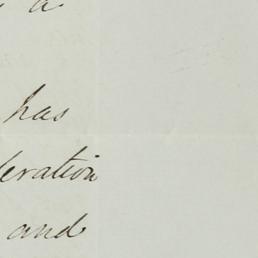 a
has
eration
and